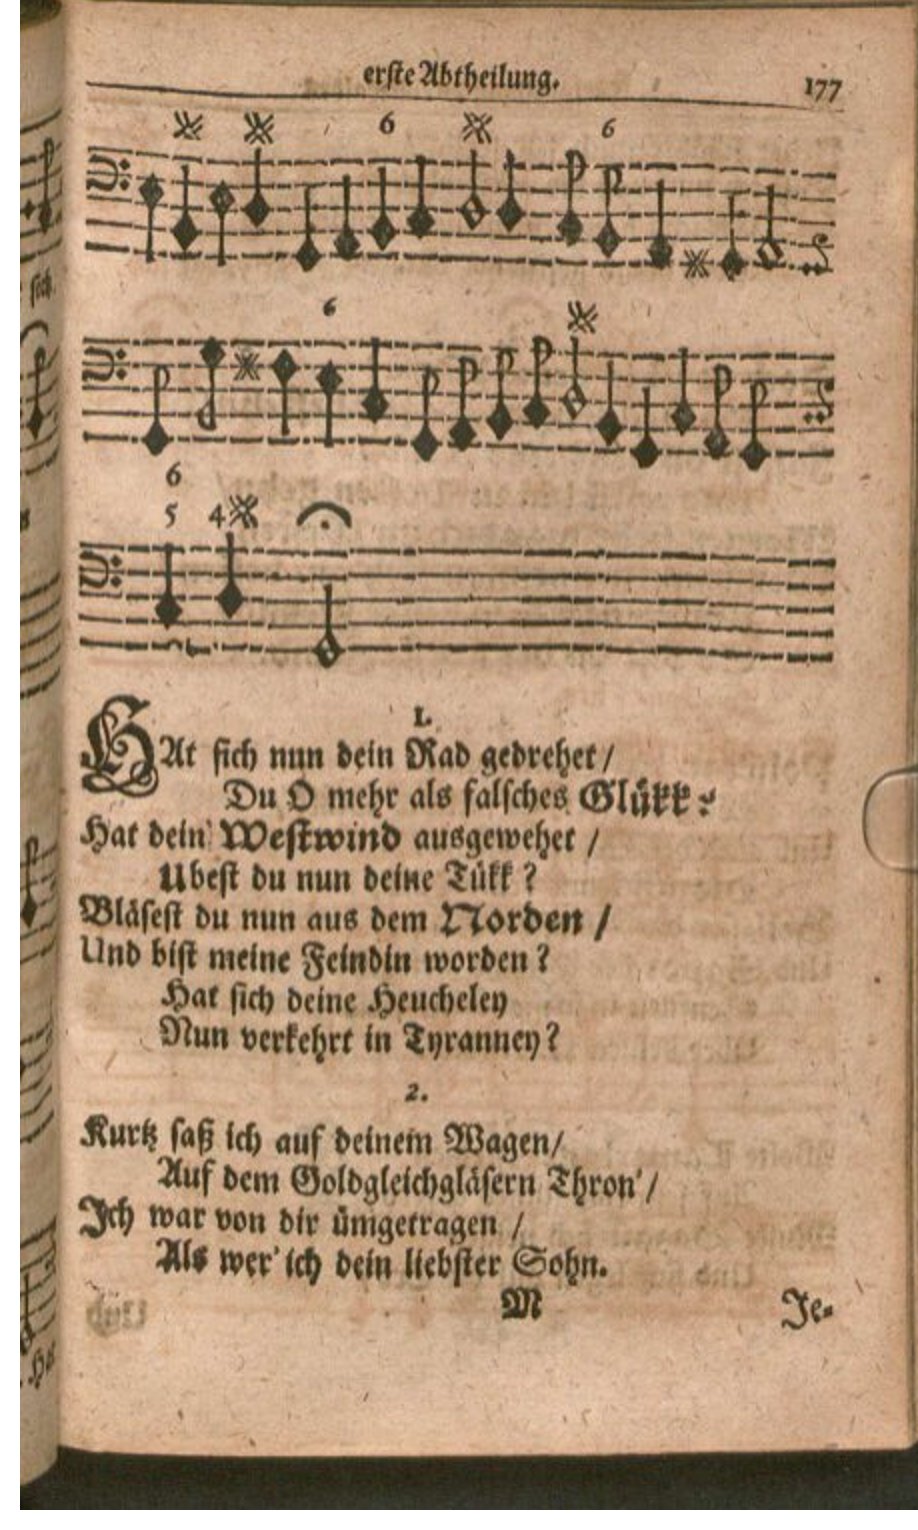 erste Abtheilung. 177
6 6
6
6
5 4
1.
HAt sich nun dein Rad gedrehet /
Du O mehr als falsches Glükk?
Hat dein Westwind ausgewehet /
Ubest du nun deine Tükk?
Bläsest du nun aus dem Norden /
Und bist meine Feindin worden?
Hat sich deine Heucheley
Nun verkehrt in Tyranney?
2.
Kurtz saß ich auf deinem Wagen/
Auf dem Goldgleichgläsern Thron' /
Ich war von dir ümgetragen /
Als wer' ich dein liebster Sohn.
M Je-